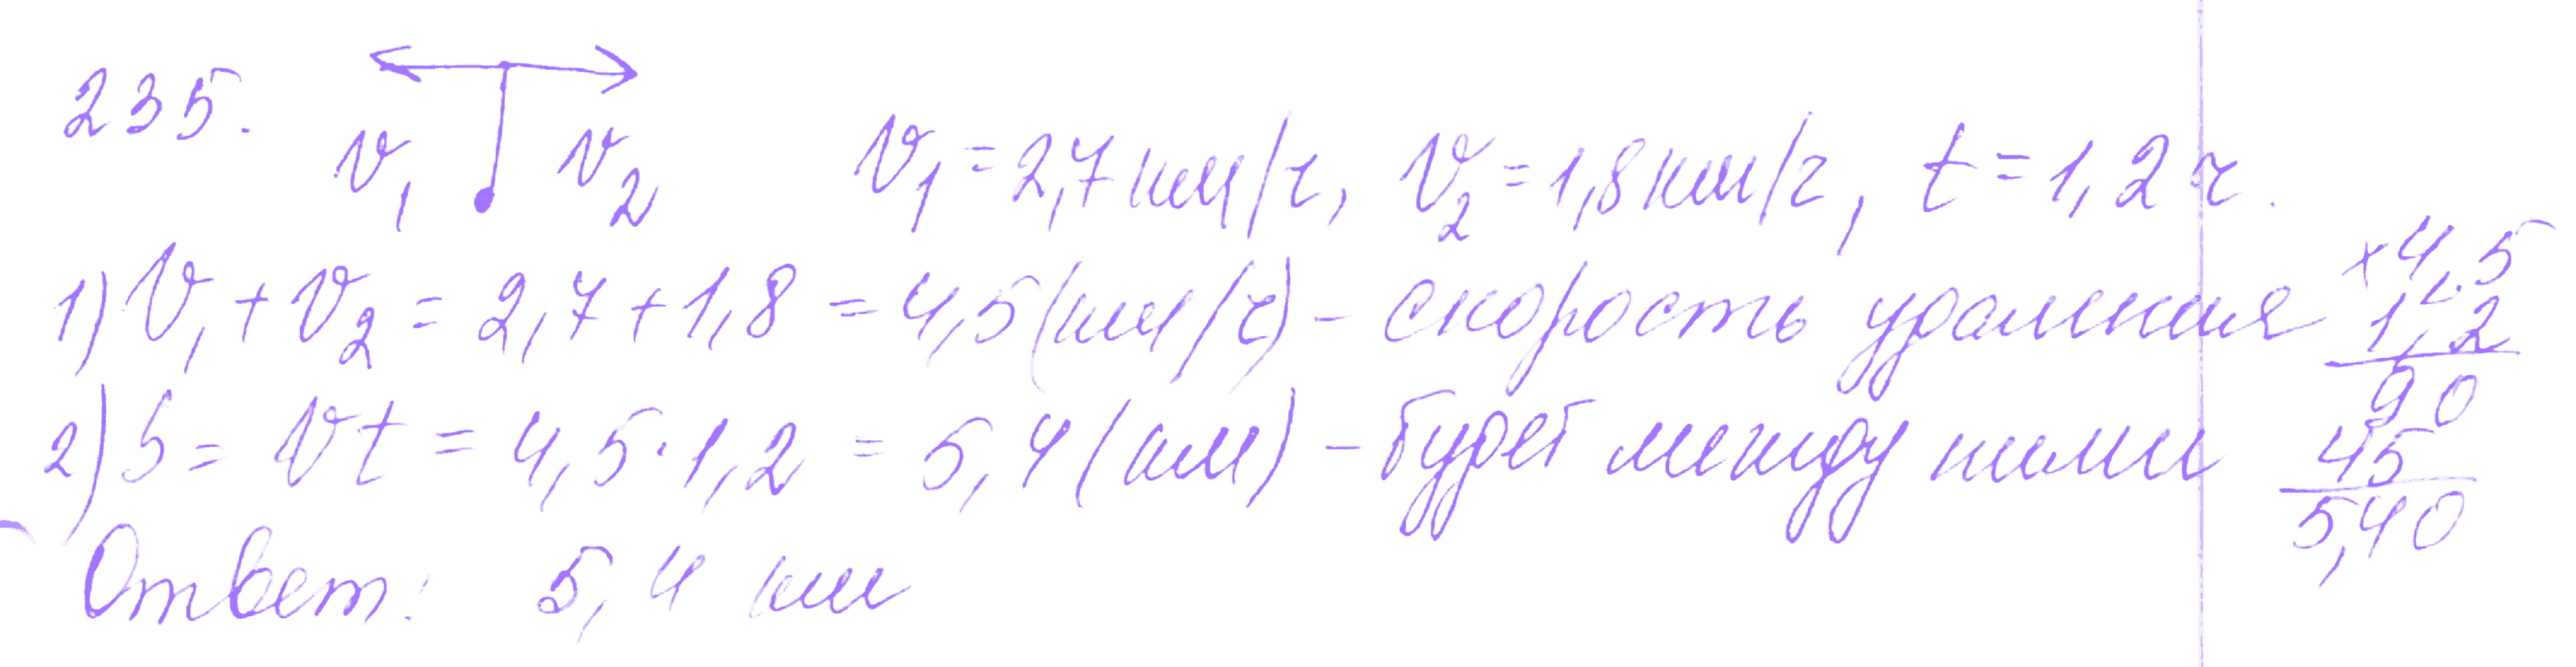 235. v₁ v₂ v₁ = 2,7 км/ч, v₂ = 1,8 км/ч, t = 1,2 ч.
1) v₁ + v₂ = 2,7 + 1,8 = 4,5 (км/ч) - скорость удаления
2) S = vt = 4,5 · 1,2 = 5,4 (км) - будет между ними
Ответ: 5,4 км
× 4,5
1,2
90
45
5,40